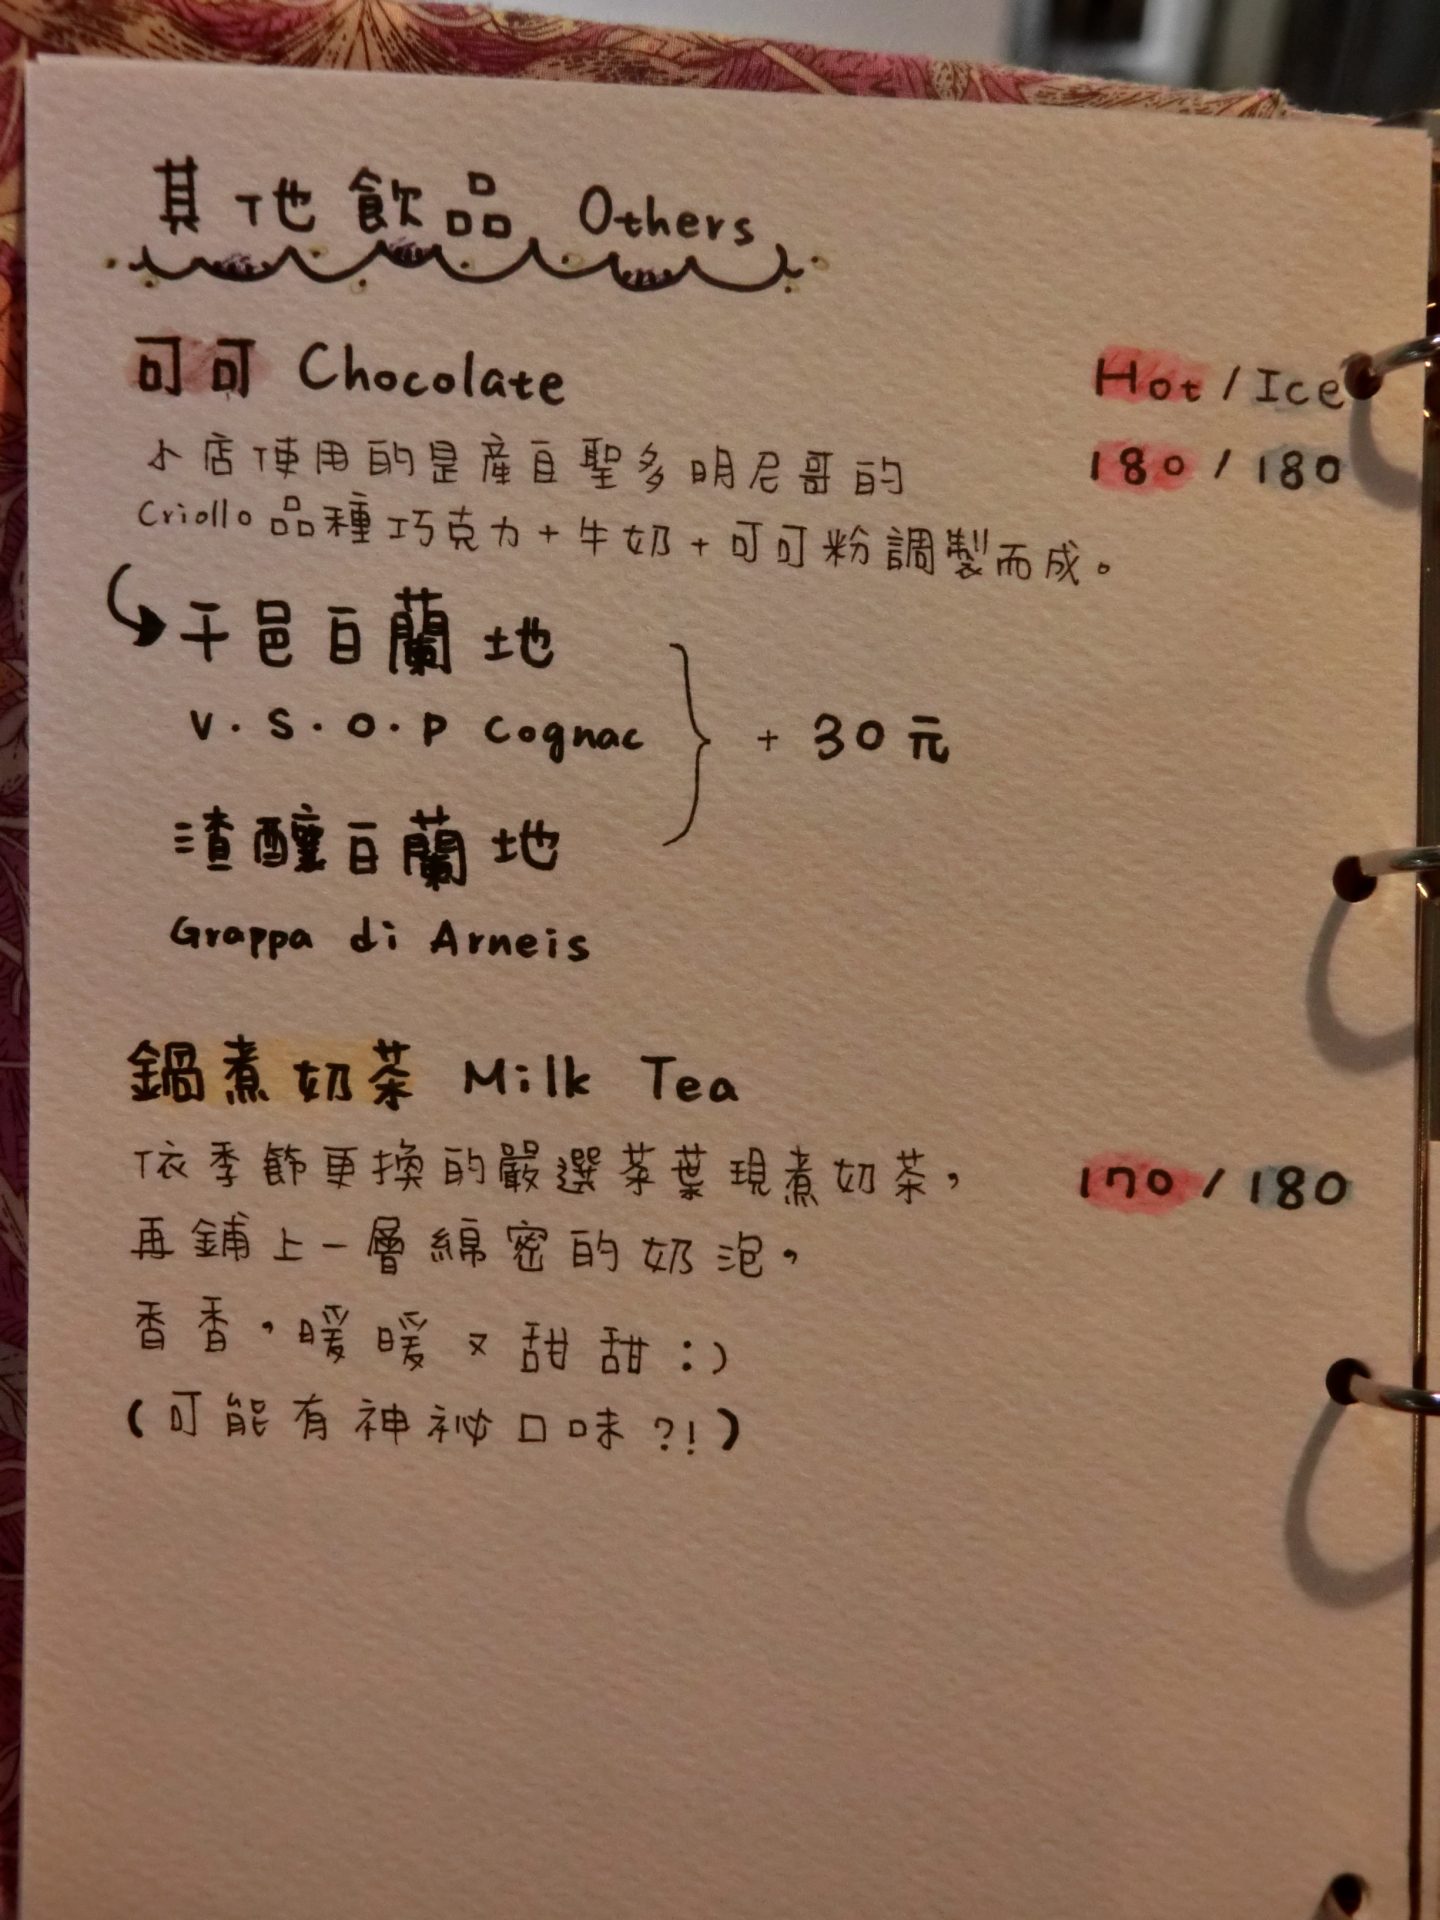 其他飲品 Others
可可 Chocolate Hot / Ice
小店使用的是產自聖多明尼哥的 180 / 180
Criollo品種巧克力+牛奶+可可粉調製而成。
干邑白蘭地
V.S.O.P Cognac + 30元
渣釀白蘭地
Grappa di Arneis
鍋煮奶茶 Milk Tea
依季節更換的嚴選茶葉現煮奶茶, 170 / 180
再鋪上一層綿密的奶泡,
香香,暖暖又甜甜:)
(可能有神祕口味?!)